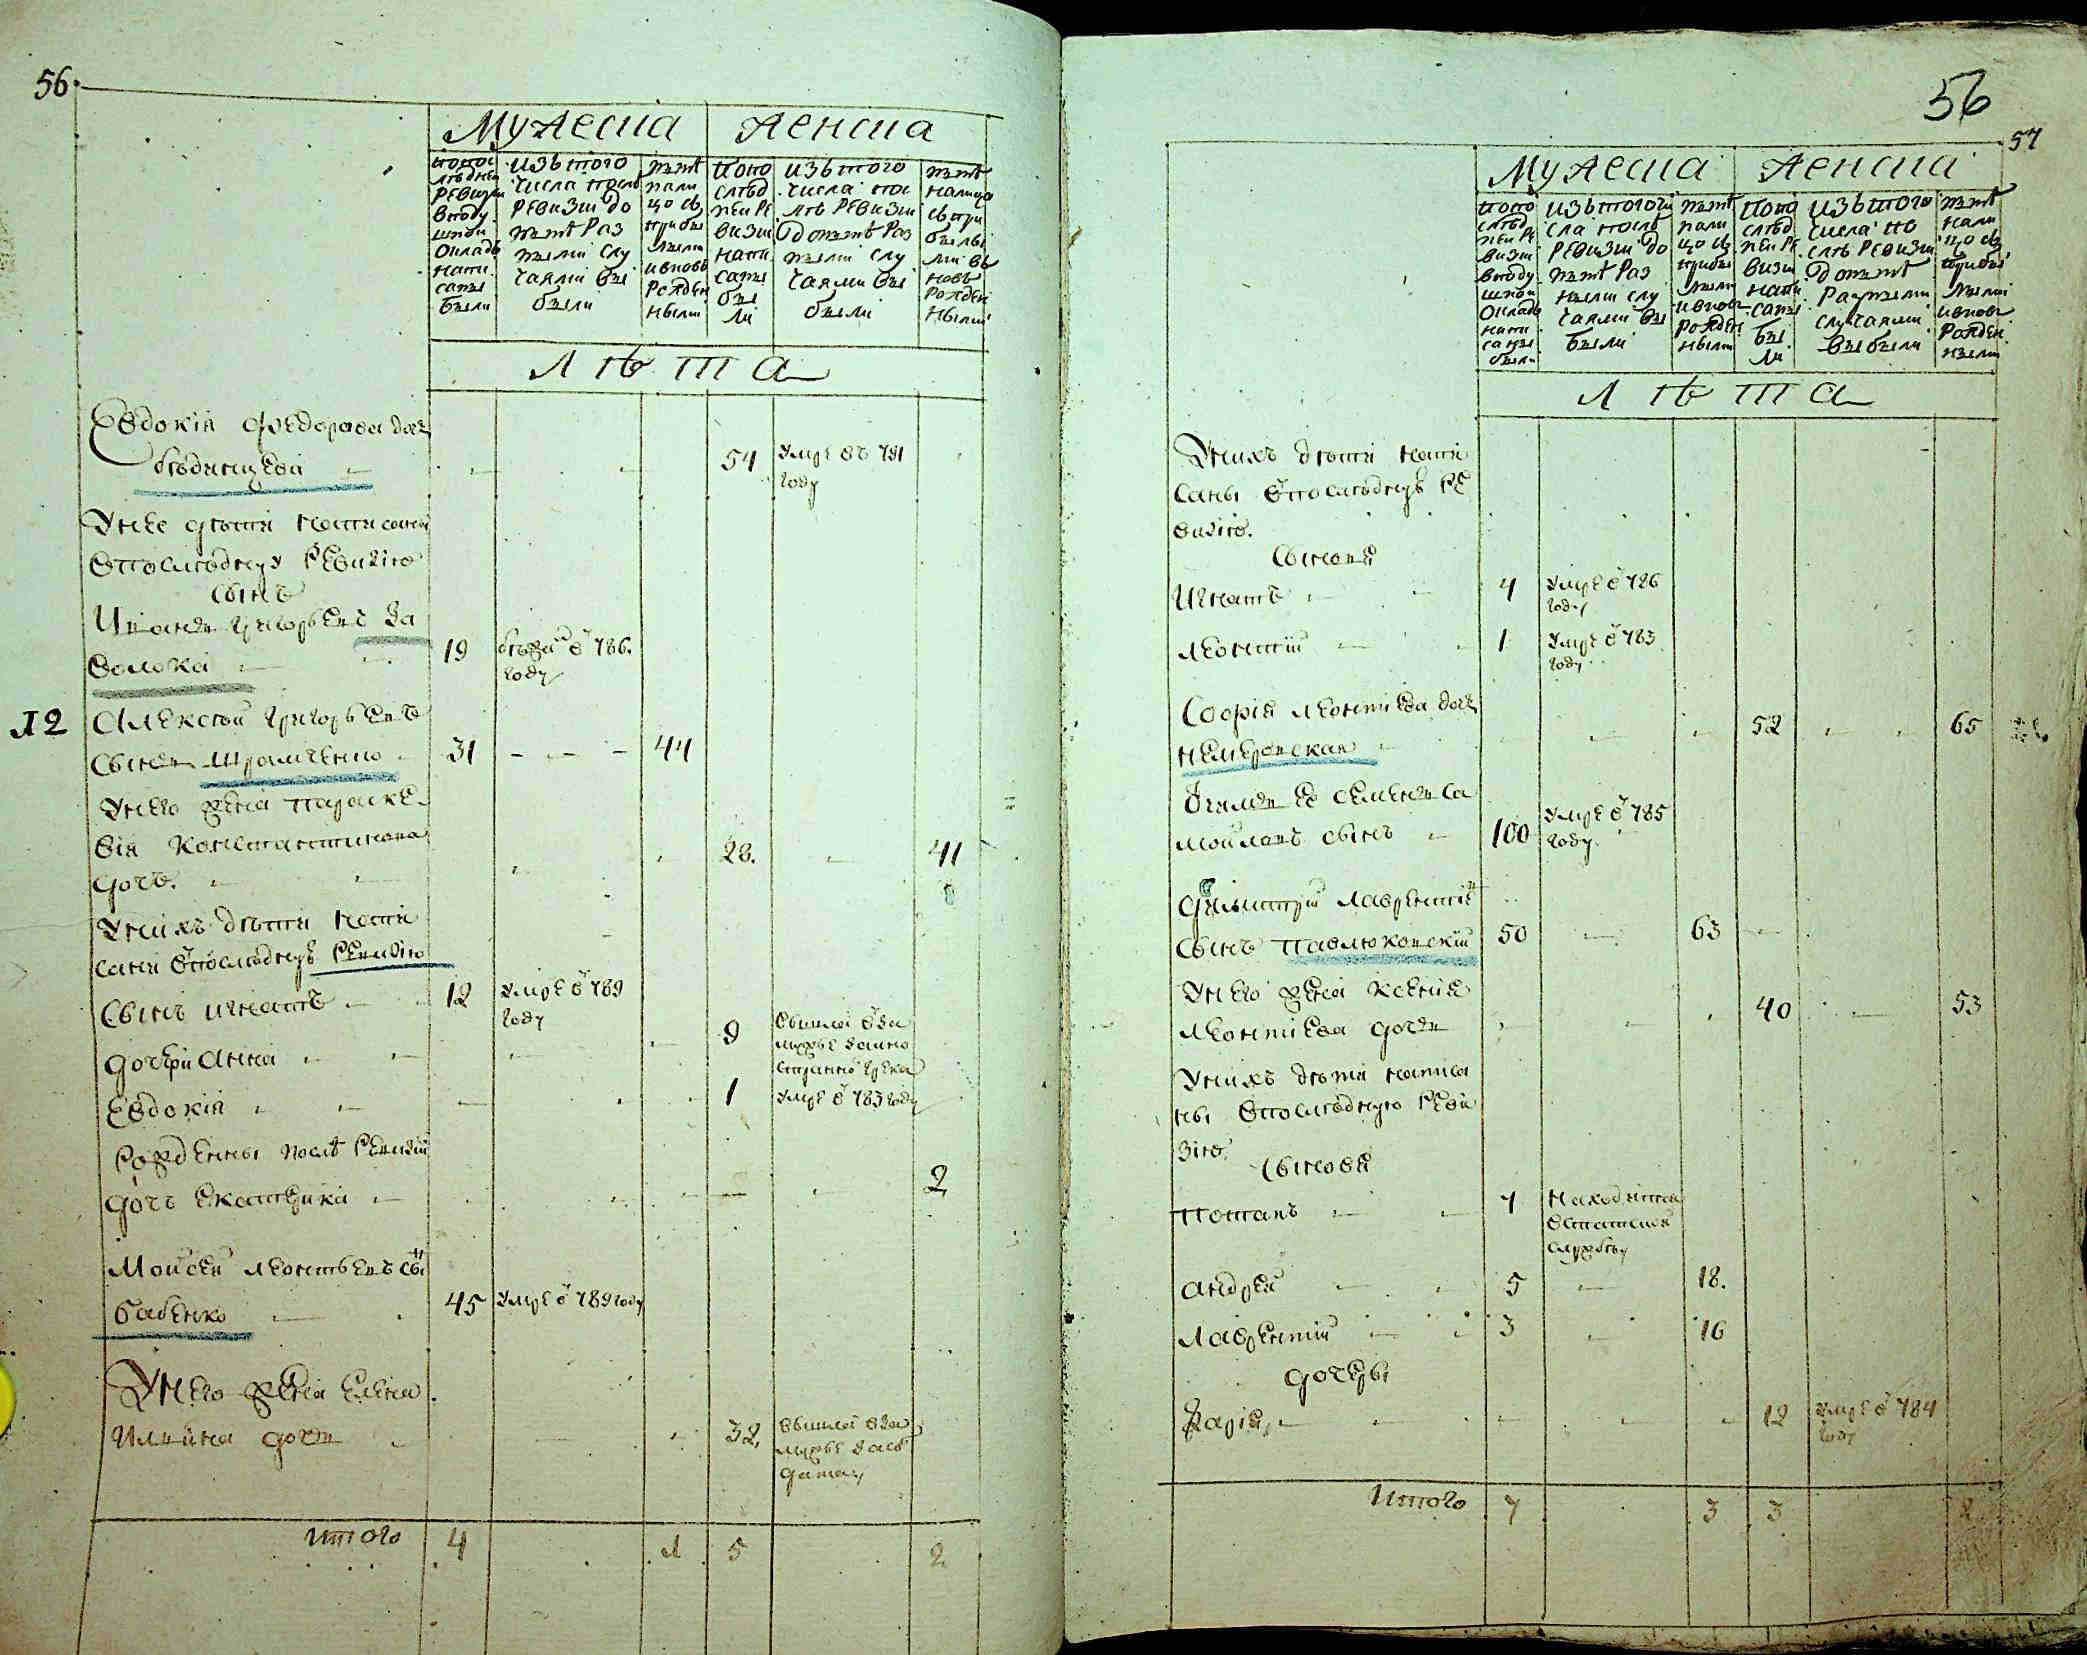 56.
Мужеска
Женска
по пос
лѣдней
ревизіи
в поду
шной
окладъ
напи
саны
были
изъ того
числа послѣ
ревизіи до
нынѣ раз
ными слу
чаями вы
были
нынѣ
нали
цо съ
прибы
лыми
и вновь
рожден
ными
по по
слѣд
ней ре
визіи
напи
саны
бы
ли
изъ того
числа пос
лѣ ревизіи
до нынѣ раз
ными слу
чаями вы
были
нынѣ
налицо
съ при
былы
ми въ
новь
рожден
ными
Лѣта
Евдокія Федорова доч
54
умре въ 791
году
У нее дѣти написаны
в последную ревизію
сынъ
Иванъ Григорьевъ За
волока
19
в 786.
году
12
Алексѣй Григорьевъ
сынъ
31
44
У него жена Параске
вія Константинова
дочь.
28.
41
У нихъ дѣти напи
сани в последную ревизію
Сынъ Игнатъ
12
умре в 789
году
дочери Анна
9
вышла в за
мужъ за ино
странно грека
Евдокія
1
умре в 783 году
Рождены послѣ ревизіи
дочь Екатерина
2
Мойсей Леонтьевъ сы
Бабенко
45
умре в 789 году
У него жена Елена
Ильина дочь
32,
вышла в за
мужъ за сол
дата
Итого
4
1
5
2
56
57
Мужеска
Женска
по по
слѣд
ней ре
визіи
в поду
шной
окладъ
напи
саны
были
изъ того чи
сла послѣ
ревизіи до
нынѣ раз
ными слу
чаями вы
были
нынѣ
нали
цо съ
прибы
лыми
и вновь
рожден
ными
по по
слѣд
ней ре
визіи
напи
саны
бы
ли
изъ того
числа по
слѣ ревизіи
до нынѣ
разными
случаями
выбыли
нынѣ
нали
цо съ
прибы
лыми
и вновь
рожден
ными
Лѣта
У нихъ дѣти напи
саны в последную ре
визію.
Сыновя
Игнатъ
4
умре в 786
году
Леонтій
1
умре в 783
году
Софія Леонтіева доч
Немеровская
52
65
Семенъ Са
мойловъ сынъ
100
умре в 785
году.
Димитрій Лаврентіе
сынъ Павлюковскій
50
63
У него жена Ксенія
Леонтіева дочь
40
53
У нихъ дѣти написа
ны в последную реви
зію.
Сыновя
Потапъ
7
находится
в штатной
службѣ
Андрей
5
18.
Лаврентій
3
16
дочеры
Марія,
12
умре в 784
году
Итого
7
3
3
2